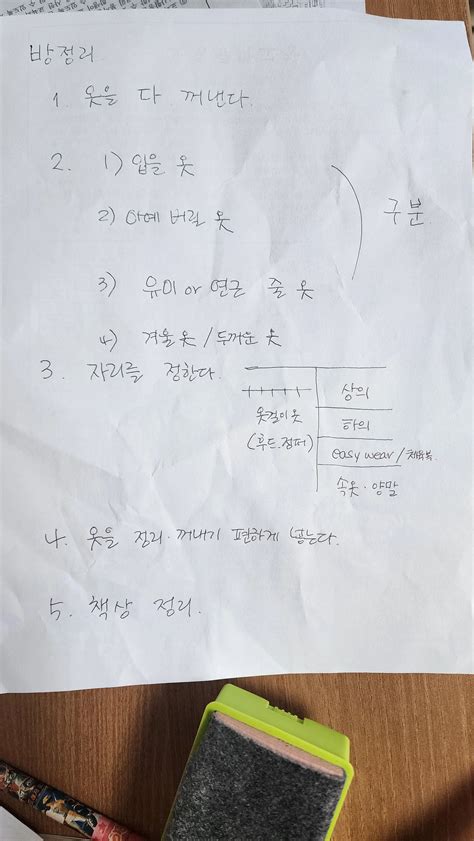 방정리
1. 옷을 다 꺼낸다.
2. 1) 입을 옷
2) 아예 버릴 옷
구분
3) 유미 or 연근 줄 옷
4) 겨울옷 / 두꺼운 옷
3. 자리를 정한다.
옷걸이옷
(후드.점퍼)
상의
하의
easy wear / 체육복.
속옷 · 양말
4. 옷을 정리 · 꺼내기 편하게 넣는다.
5. 책상 정리.